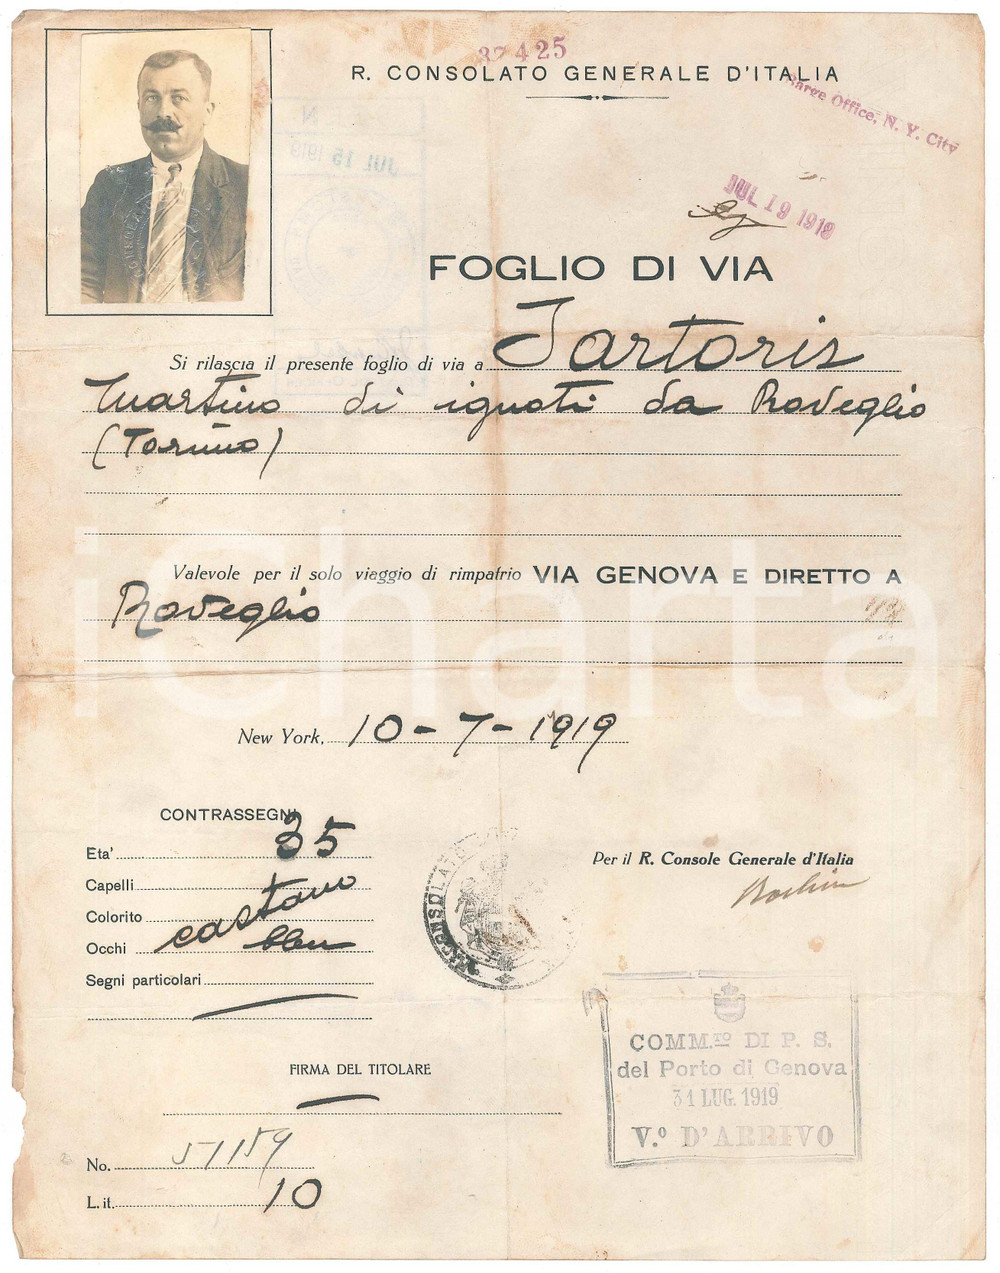 37425
R. CONSOLATO GENERALE D'ITALIA
Barge Office, N. Y. City
JUL 19 1919
JUL 15 1919
FOGLIO DI VIA
Si rilascia il presente foglio di via a Sartoris
Martino di ignoti da Roveglio
(Torino)
Valevole per il solo viaggio di rimpatrio VIA GENOVA E DIRETTO A
Roveglio
iCharta
New York, 10-7-1919
CONTRASSEGNI
Eta' 35
Capelli
Colorito castano
Occhi bleu
Segni particolari
Per il R. Console Generale d'Italia
R. CONSOLATO
COMM.TO DI P. S.
del Porto di Genova
31 LUG. 1919
V.o D'ARRIVO
FIRMA DEL TITOLARE
No. 51159
L. it. 10